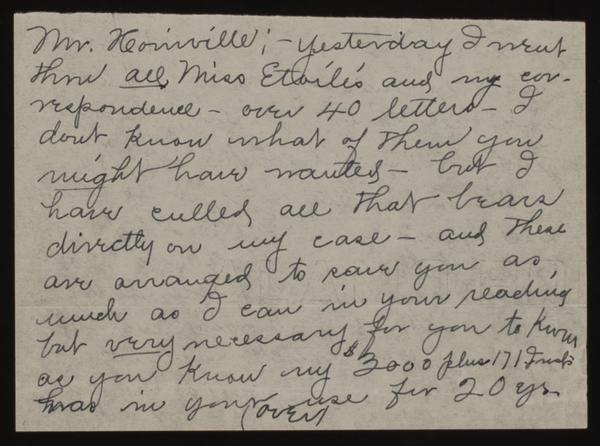 Mr. Hoinville; - yesterday I went
thru all Miss Etoile's and my cor-
respondence - over 40 letters - I
dont know what of them you
might have wanted - but I
have culled all that bears
directly on my case - and these
are arranged to save you as
much as I can in your reading
but very necessary for you to know
as you know my $3000 plus 171 Trust
was in your use for 20 yrs.
(over)